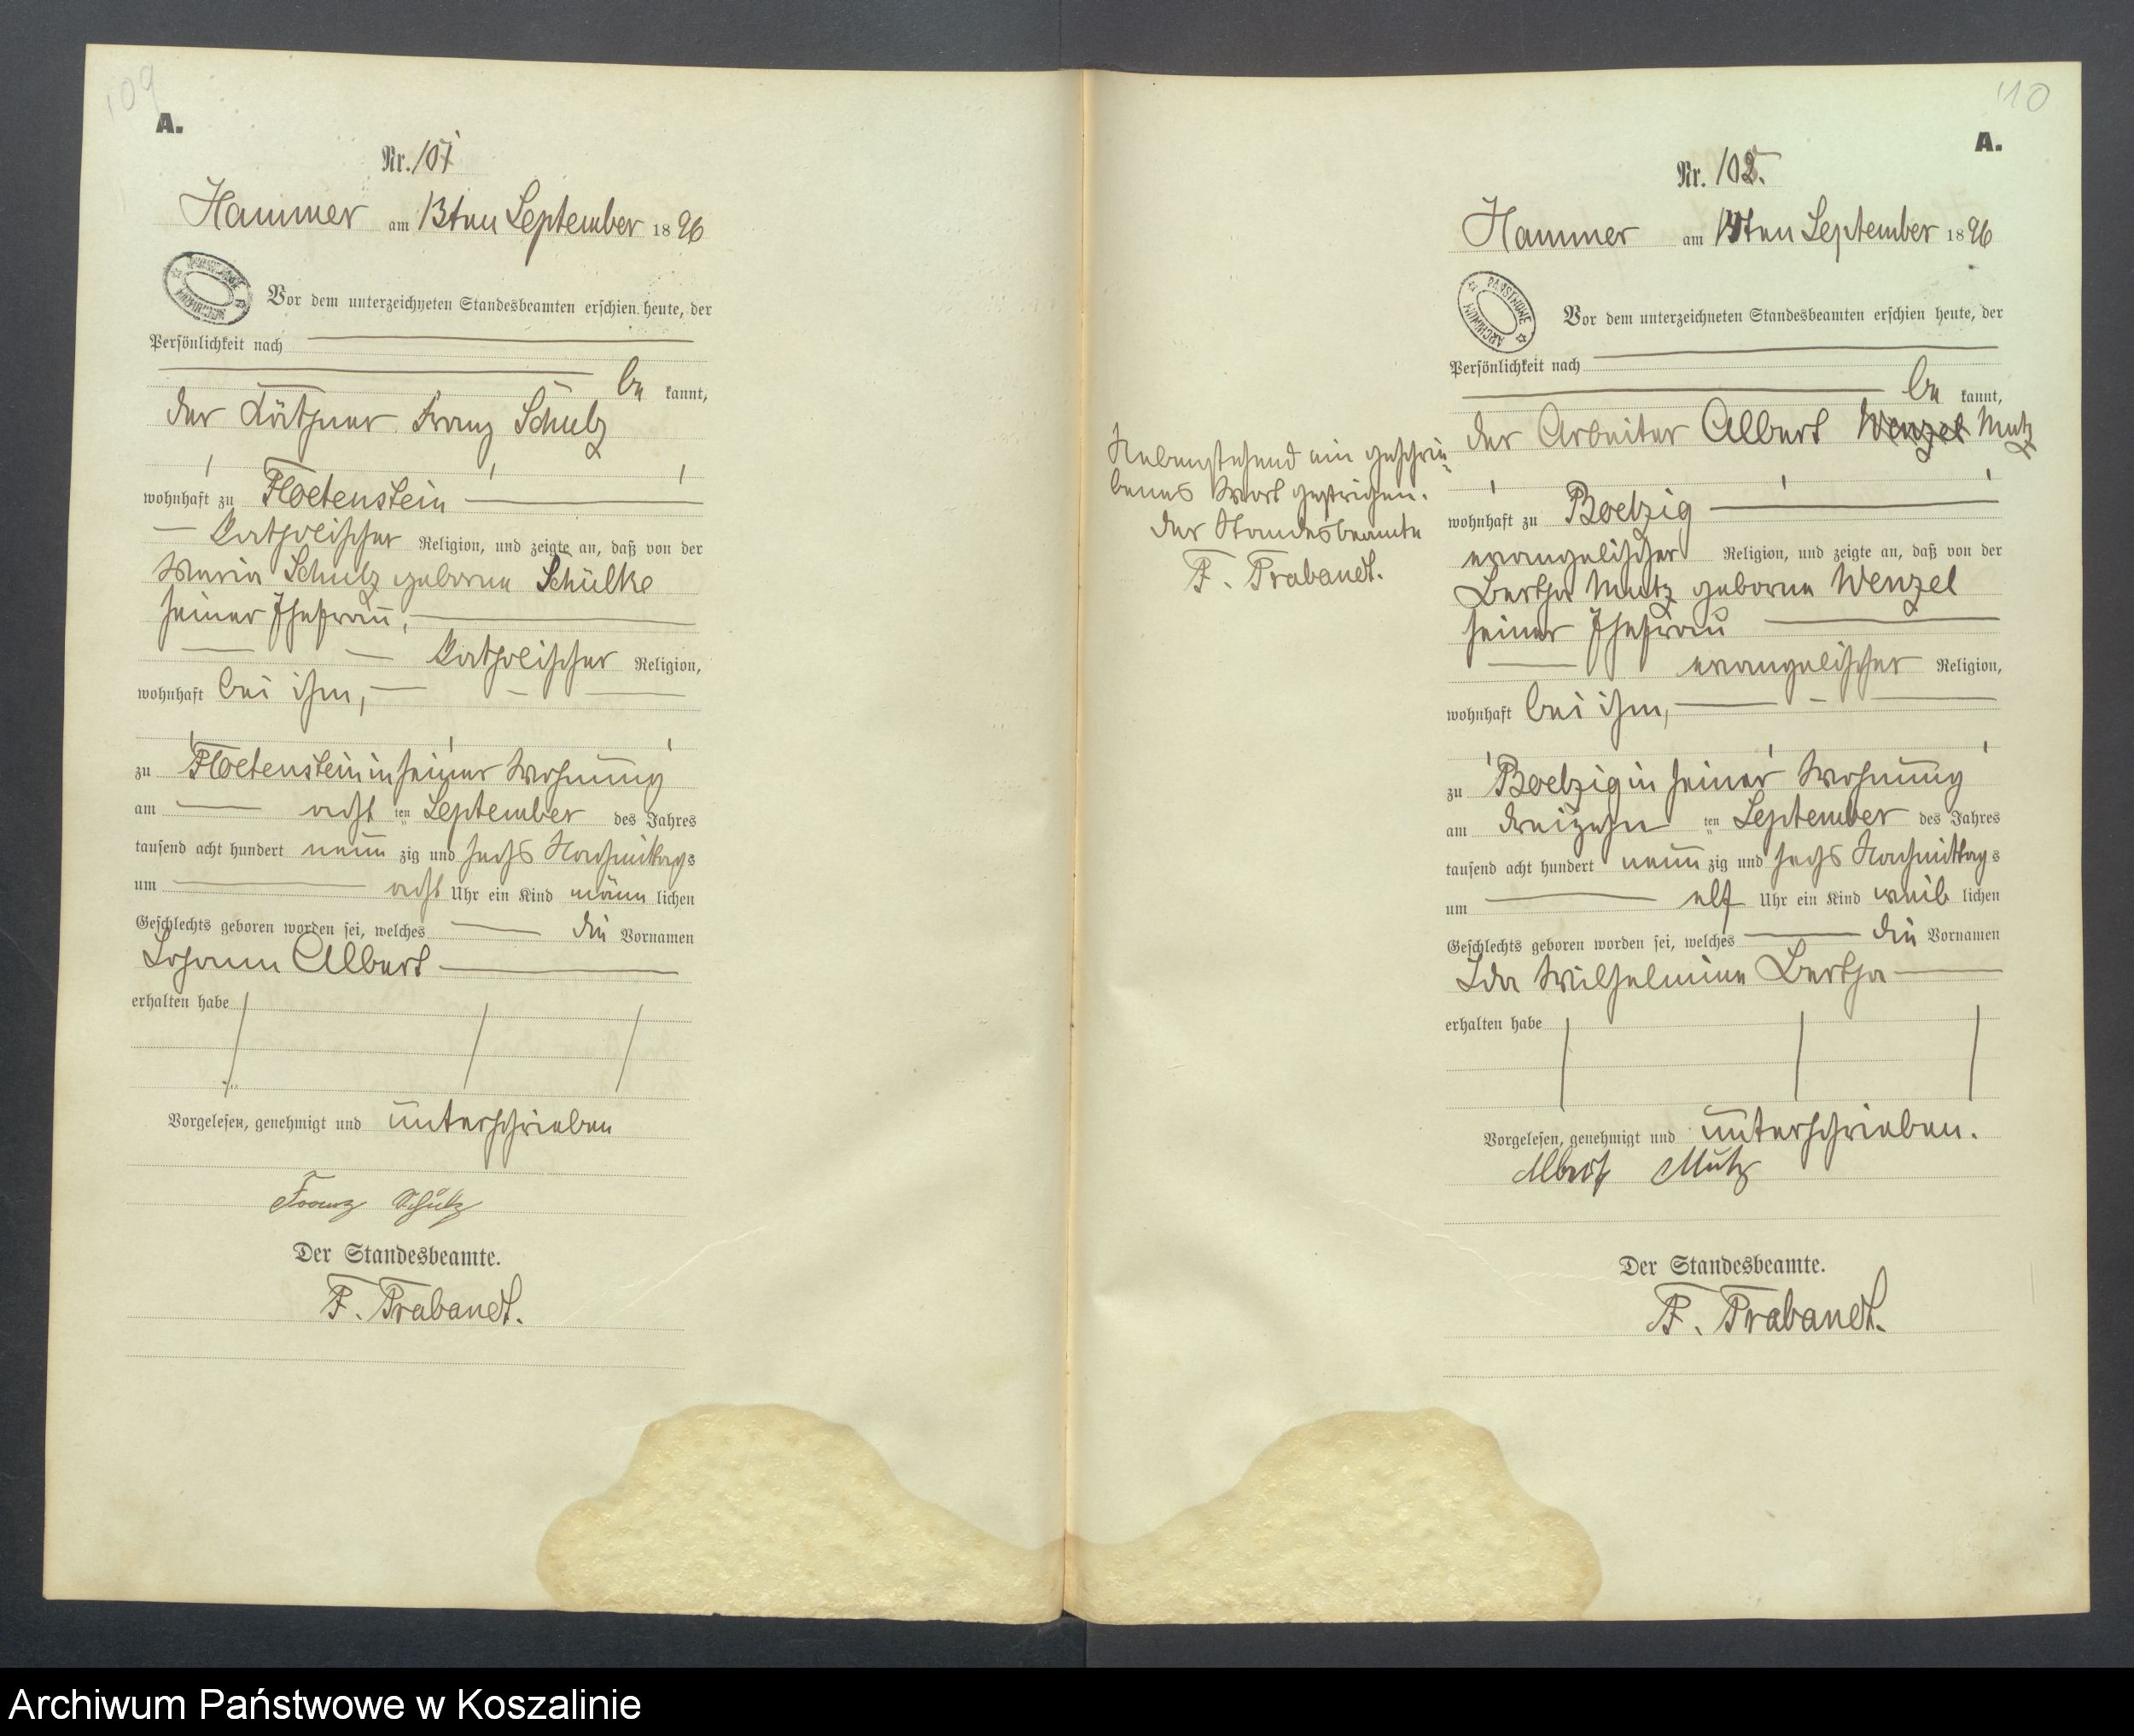 109
A.
Nr. 101
Hammer am 13ten September 1896
Vor dem unterzeichneten Standesbeamten erschien heute, der
Persönlichkeit nach
be kannt,
der Käthner Franz Schulz
wohnhaft zu Floetenstein
katholischer Religion, und zeigte an, daß von der
Maria Schulz geborne Schülke
seiner Ehefrau,
katholischer Religion,
wohnhaft bei ihm,
zu Floetenstein in seiner Wohnung
am acht ten September des Jahres
tausend acht hundert neun zig und sechs Nachmittags
um acht Uhr ein Kind männ lichen
Geschlechts geboren worden sei, welches die Vornamen
Johann Albert
erhalten habe
Vorgelesen, genehmigt und unterschrieben
Franz Schulz
Der Standesbeamte.
F. Trabandt.
110
A.
Nr. 102.
Hammer am 14ten September 1896
PAŃSTWOWE
ARCHIWUM
Vor dem unterzeichneten Standesbeamten erschien heute, der
Persönlichkeit nach
be kannt,
der Arbeiter Albert Wenzel Mutz
wohnhaft zu Boelzig
evangelischer Religion, und zeigte an, daß von der
Bertha Mutz geborne Wenzel
seiner Ehefrau
evangelischer Religion,
wohnhaft bei ihm,
zu Boelzig in seiner Wohnung
am dreizehn ten September des Jahres
tausend acht hundert neun zig und sechs Nachmittags
um elf Uhr ein Kind weib lichen
Geschlechts geboren worden sei, welches die Vornamen
Ida Wilhelmine Bertha
erhalten habe
Vorgelesen, genehmigt und unterschrieben.
Albert Mutz
Der Standesbeamte.
F. Trabandt.
Nebenstehend ein geschrie-
benes Wort gestrichen.
Der Standesbeamte
F. Trabandt.
Archiwum Państwowe w Koszalinie